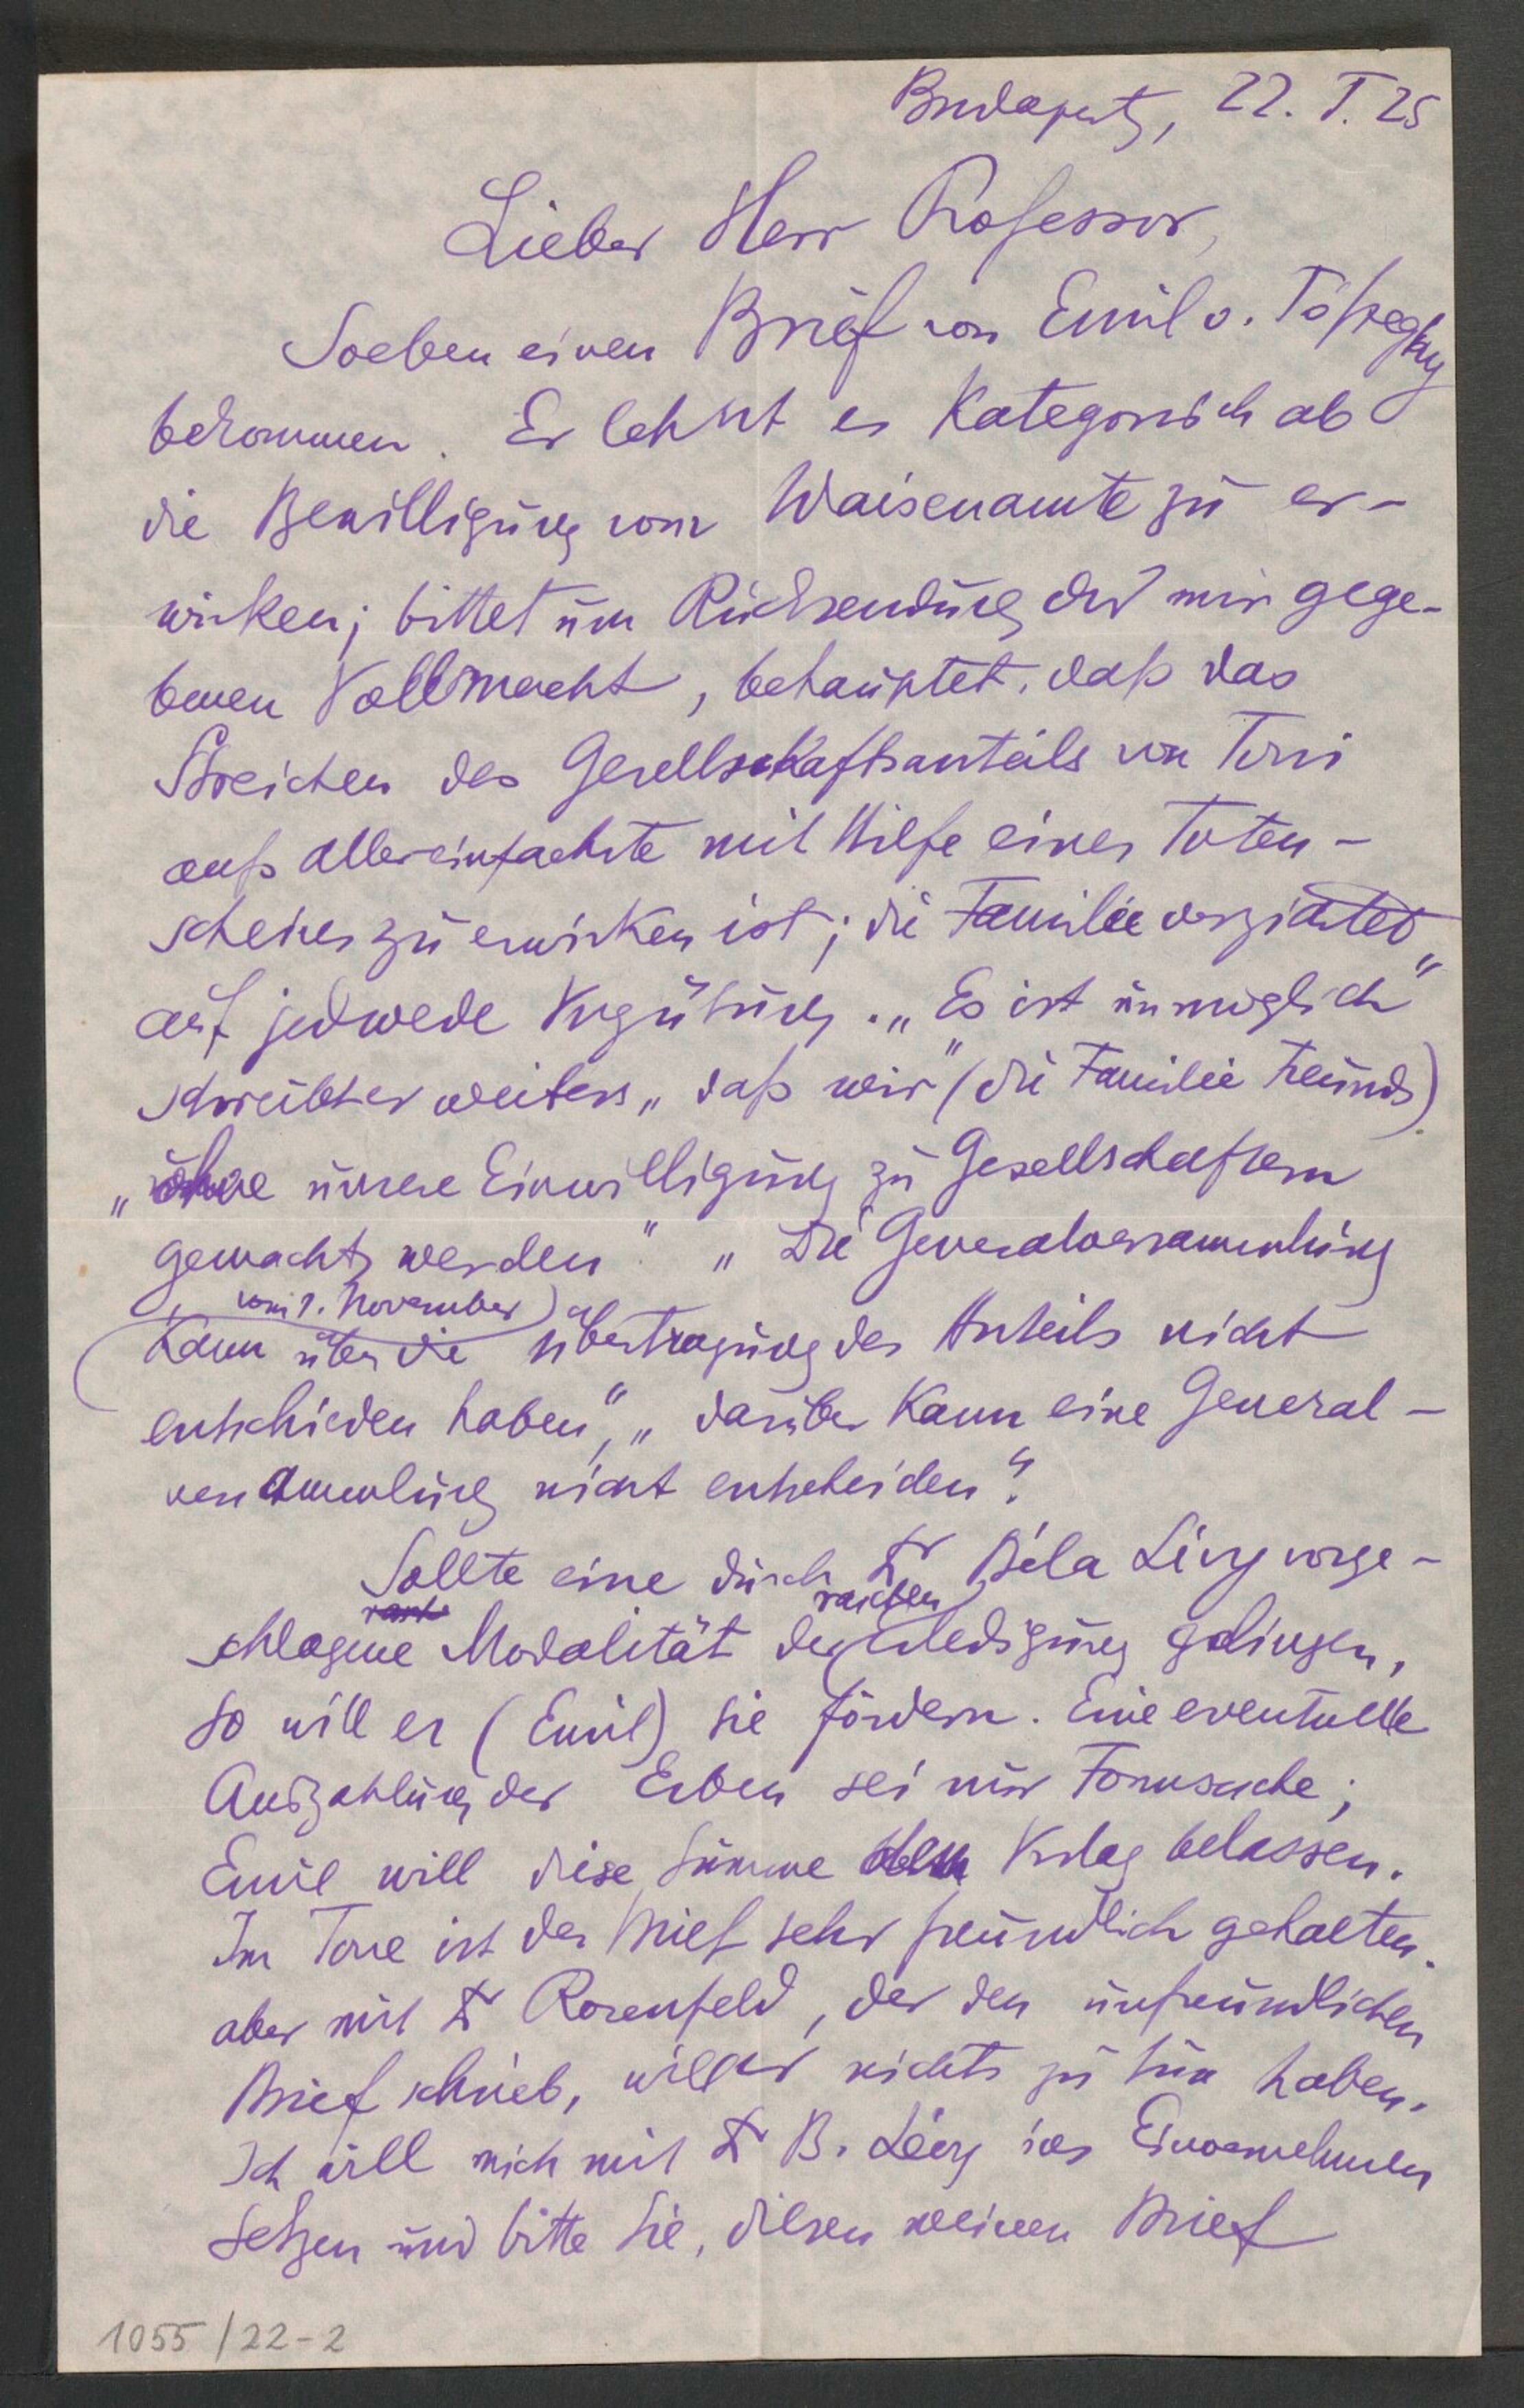 Budapest, 22. I. 25
Lieber Herr Professor,
Soeben einen Brief von Emil v. Tószeghy
bekommen. Er lehnt es kategorisch ab
die Bewilligung vom Waisenamte zu er-
wirken; bittet um Rücksendung der mir gege-
benen Vollmacht, behauptet, daß das
Streichen des Gesellschaftsanteils von Toni
aufs allereinfachste mit Hilfe eines Toten-
scheines zu erwirken ist; die Familie verzichtet
auf jedwede Vergütung. „Es ist unmöglich"
schreibt er weiters „daß wir" (die Familie Freunds)
„ohne unsere Einwilligung zu Gesellschaftern
gemacht werden" „Die Generalversammlung
(vom 1. November)
kann über die Übertragung des Anteils nicht
entschieden haben", „darüber kann eine General-
versammlung nicht entscheiden".
Sollte eine durch Dr Béla Lévy vorge-
raschen
schlagene Modalität der Erledigung gelingen,
so will er (Emil) sie fördern. Eine eventuelle
Auszahlung der Erben sei nur Formsache;
Emil will diese Summe dem Verlag belassen.
Im Tone ist der Brief sehr freundlich gehalten.
aber mit Dr Rosenfeld, der den unfreundlichen
Brief schrieb, will er nichts zu tun haben.
Ich will mich mit Dr B. Lévy ins Einvernehmen
setzen und bitte Sie, diesen meinen Brief
1055/22-2